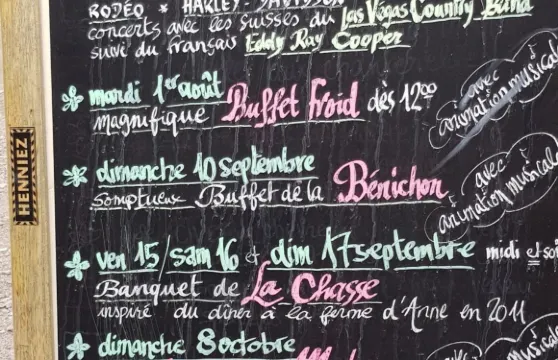 RODÉO * HARLEY-DAVIDSON
concerts avec les suisses du Las Vegas Country Band
suivi du français Eddy Ray Cooper
mardi 1er août Buffet Froid dès 12⁰⁰
magnifique
avec
animation musicale
dimanche 10 septembre
somptueux Buffet de la Bénichon
avec
animation musicale
HENNIEZ
ven 15/sam 16 et dim 17 septembre midi et soi
Banquet de La Chasse
inspiré du dîner à la ferme d'Anne en 2011
dimanche 8 octobre